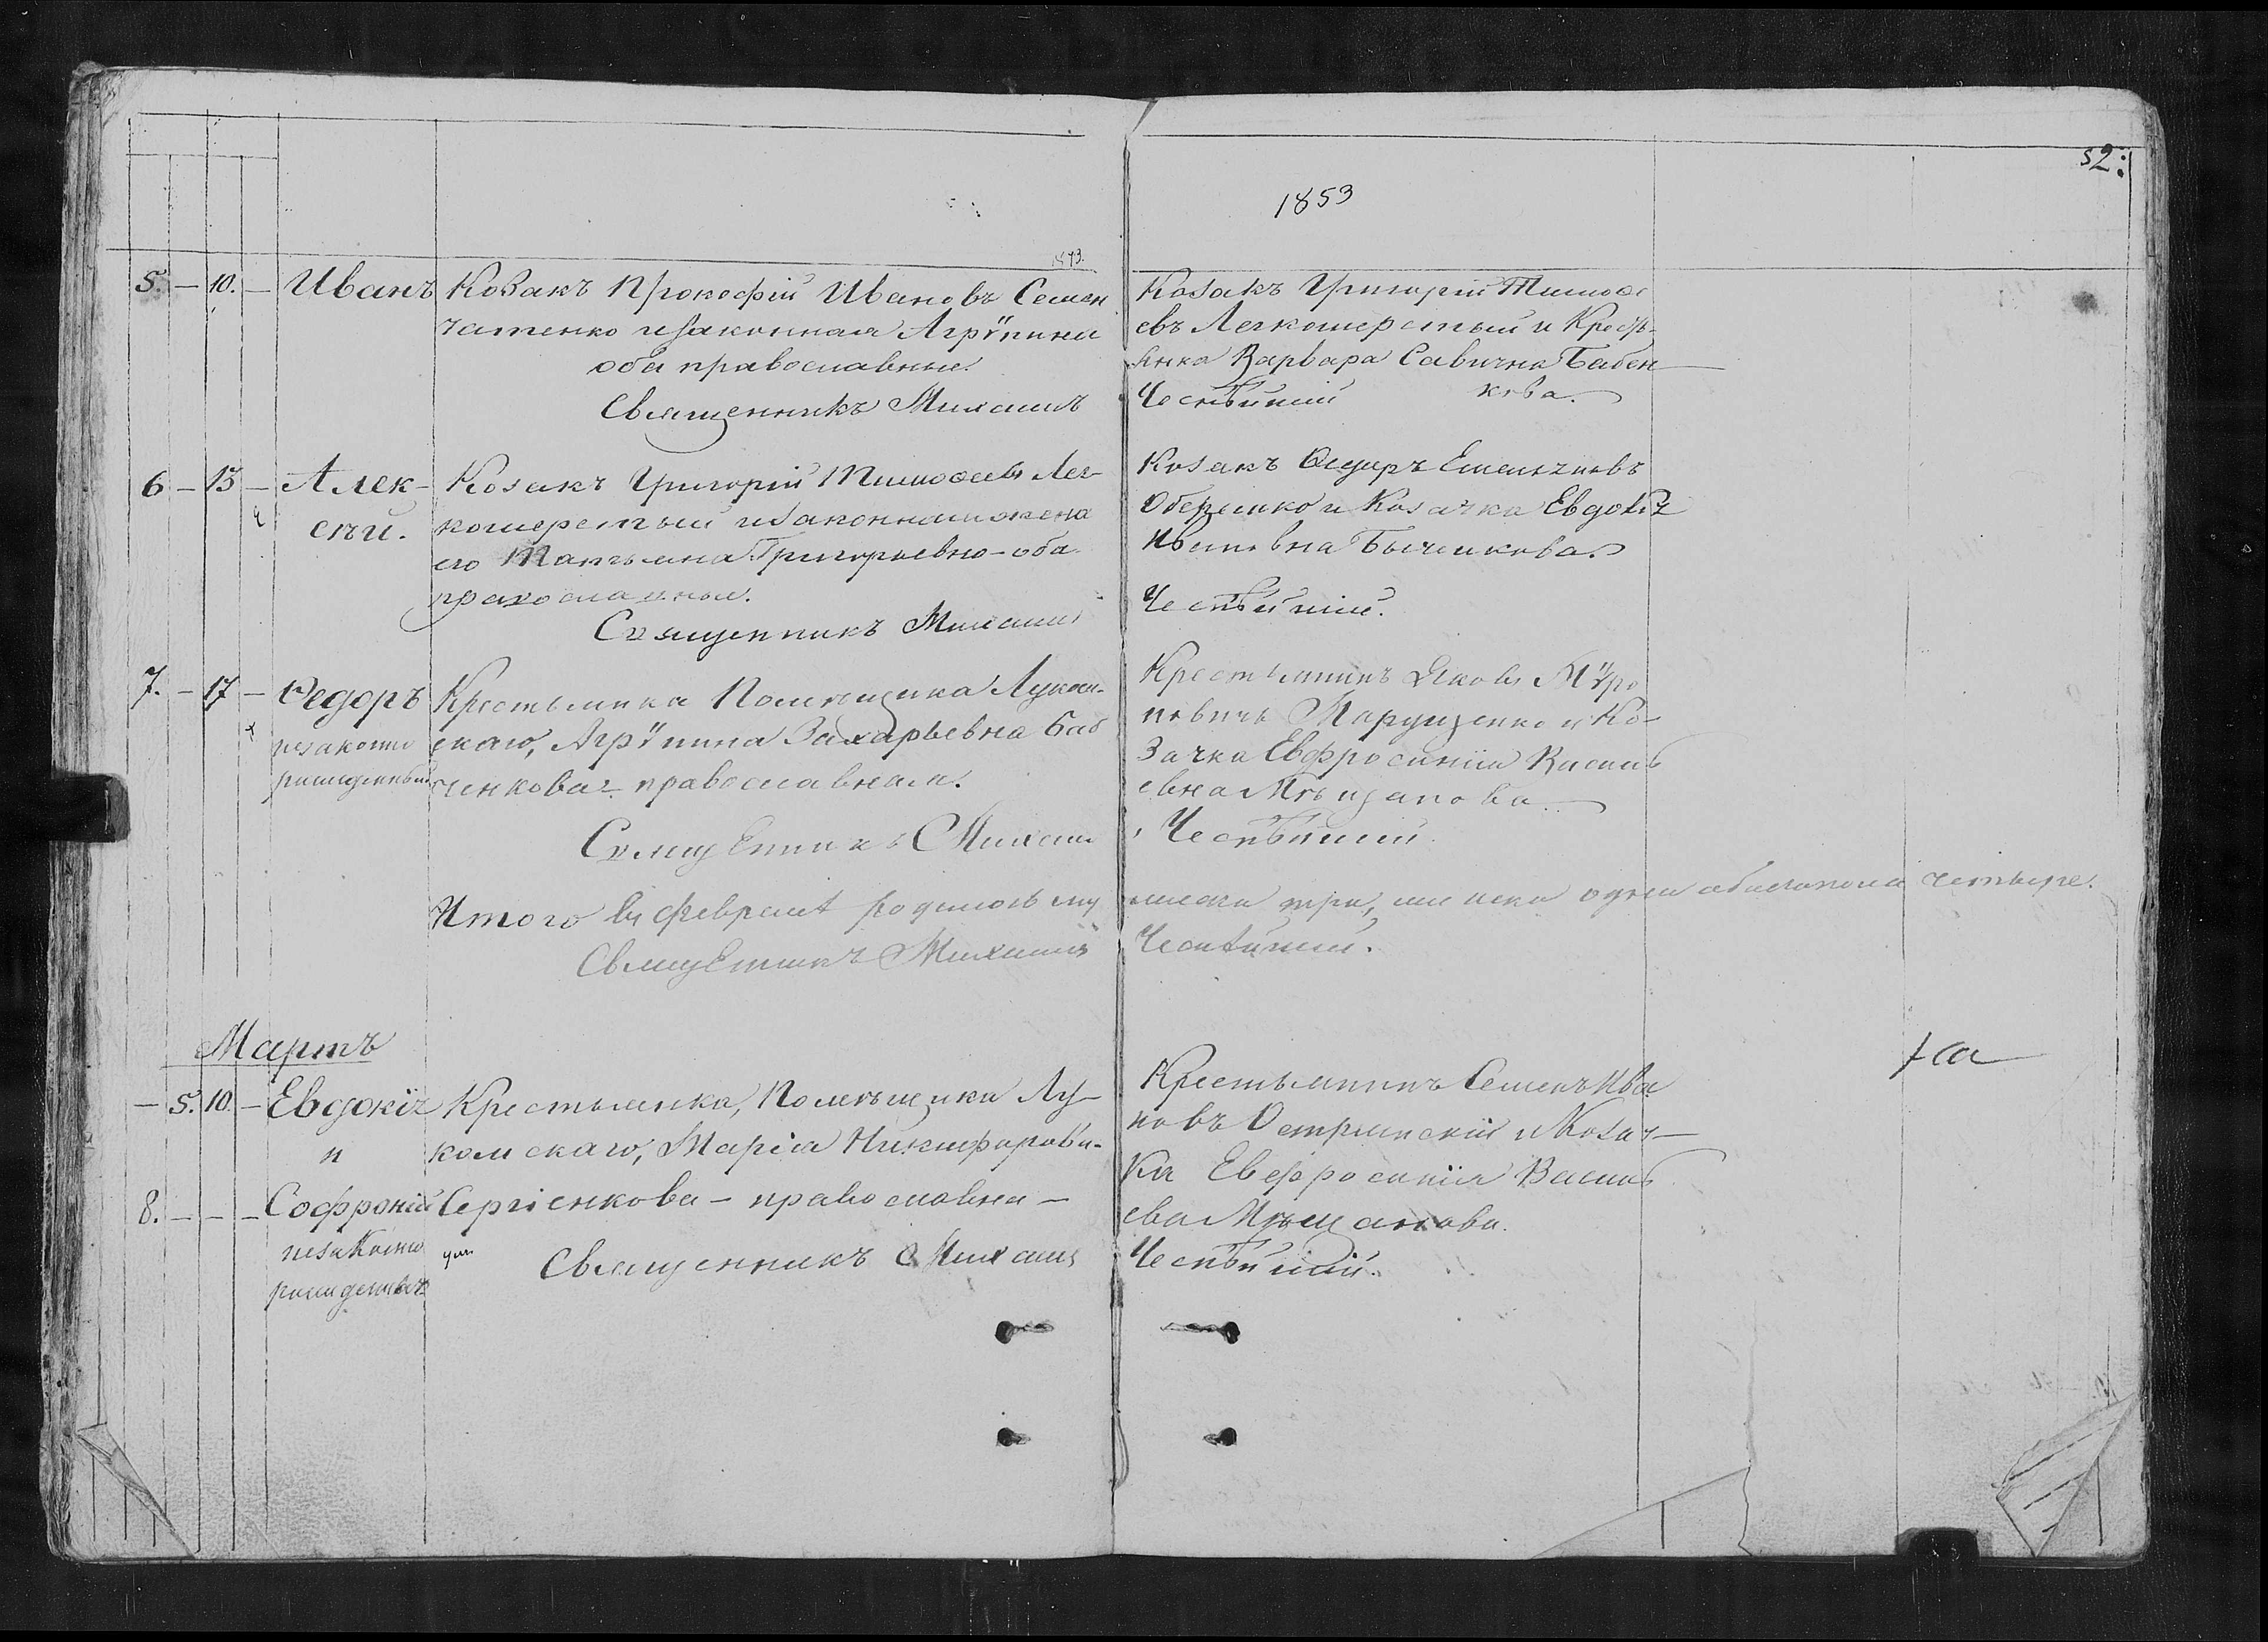 52:
1853
5. — 10. — Иванъ Козакъ Прокофій Ивановъ Семен
чатенко и законная Агрѵпина
оба православные.
Священникъ Михаилъ
Козакъ Григорій Тимоѳе
евъ Легкошерстый и Кресть-
янка Варвара Савична Бабен
кова.
6 — 13 — Алек-
сѣй.
Козакъ Григорій Тимоѳеевъ Лег-
кошерстый и законная жена
его Татьяна Григорьевна — оба
православные.
Священникъ Михаилъ
Козакъ Ѳедоръ
и Козачка Евдокія
7. — 17 — Ѳедоръ
незаконно
рожденный
Крестьянка Помѣщика Луком-
скаго, Агрѵпина Захарьевна Баб
ченкова православная.
Священникъ Михаилъ
Крестьянинъ Яковъ Мѵро
новичъ Марущенко и Ко-
зачка Евфросинія Василь
евна Мѣщанова
Итого въ февралѣ родилось му
жеска три, женска одна обоего пола четыре.
Священникъ Михаилъ
Мартъ
— 5. 10. — Евдокія
и
8. — — — Софроній
незаконно
рожденные
Крестьянка, Помѣщика Лу-
комскаго, Марія Никифорова-
Сергіенкова — православна —
Священникъ Михаилъ
Крестьянинъ Семенъ Ива
новъ и Козач-
ка Евфросинія Василь
ева Мѣщанова.